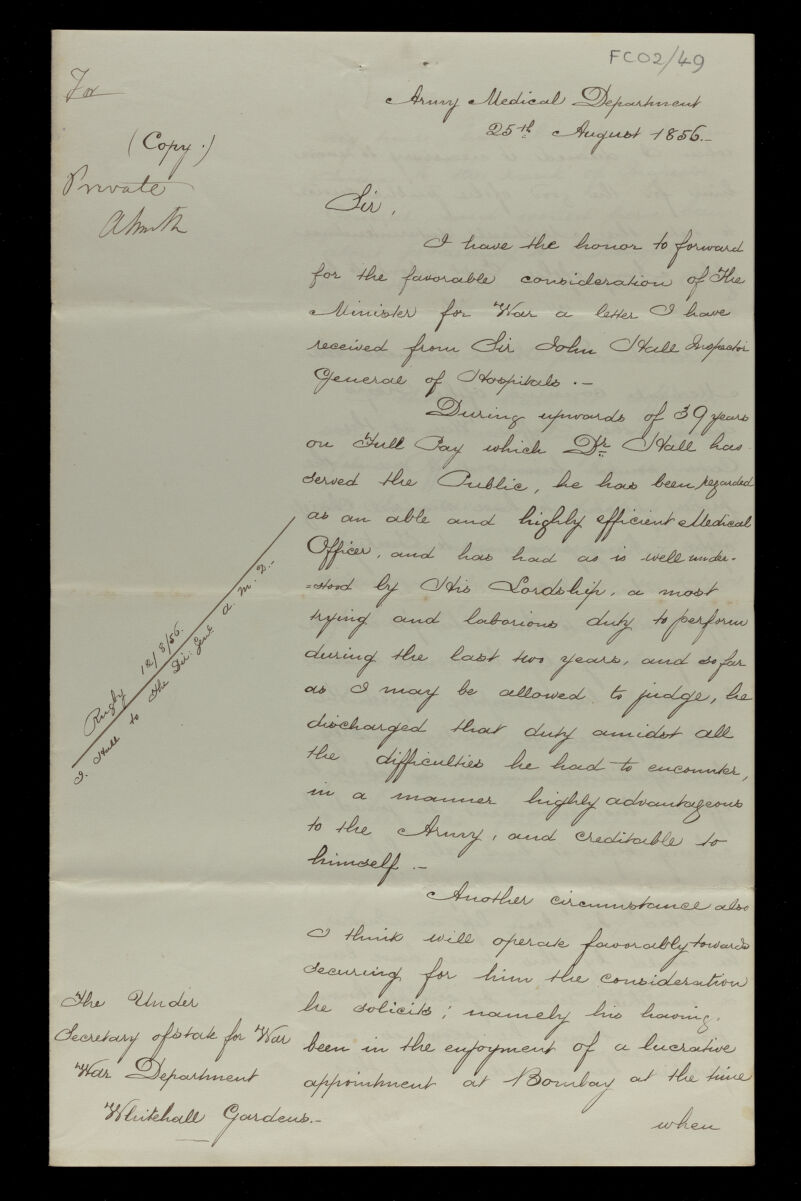 FCO2/49
For
Army Medical Department
25th August 1856.-
(Copy.)
Private
ASmith
Sir,
I have the honor to forward
for the favorable consideration of The
Minister for War a letter I have
received from Sir John Hall Inspector
General of Hospitals.-
During upwards of 39 years
on Full Pay which Dr Hall has
served the Public, he has been regarded
as an able and highly efficient Medical
Officer, and has had as is well under-
=stood by His Lordship, a most
trying and laborious duty to perform
during the last two years, and so far
as I may be allowed to judge, he
discharged that duty amidst all
the difficulties he had to encounter,
in a manner highly advantageous
to the Army, and creditable to
himself.-
Another circumstance also
I think will operate favorably towards
securing for him the consideration
he solicits; namely his having,
been in the enjoyment of a lucrative
appointment at Bombay at the time
when
Rugby 12/8/56.
J. Hall to the Dir: Genl. A. M. D.-
The Under
Secretary of state for War
War Department
Whitehall Gardens.-